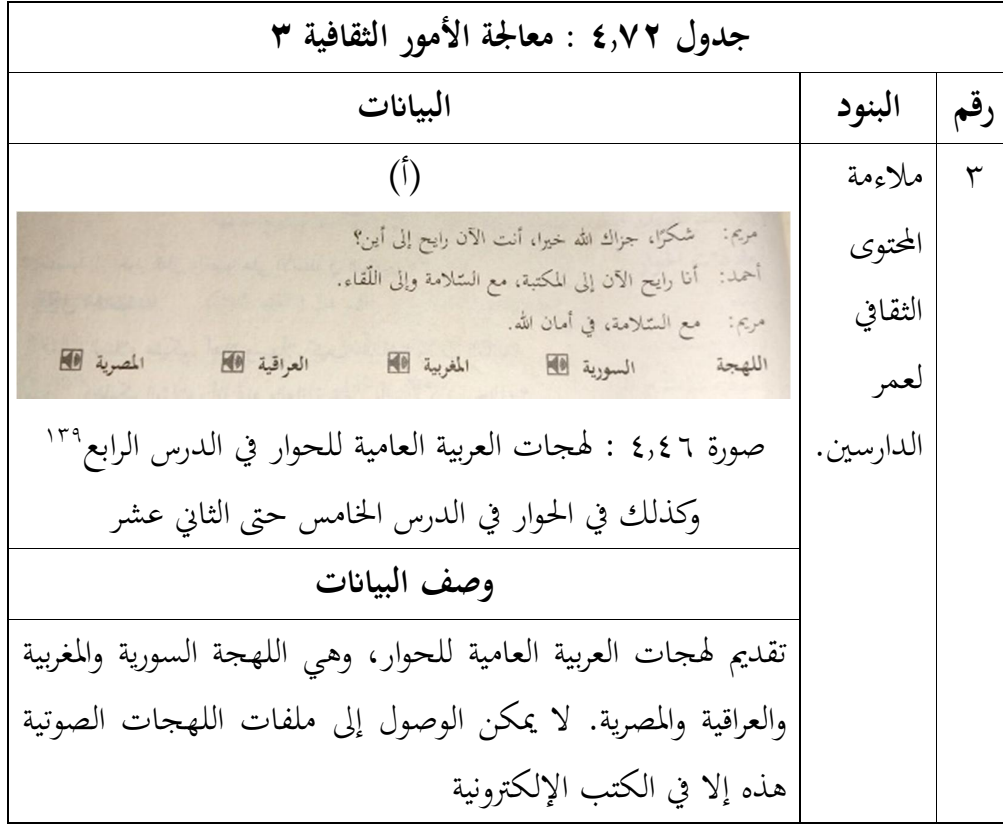 جدول ٤,٧٢ : معالجة الأمور الثقافية ٣
رقم
البنود
البيانات
٣
ملاءمة
المحتوى
الثقافي
لعمر
الدارسين.
(أ)
مريم: شكرًا، جزاك الله خيرا، أنت الآن رايح إلى أين؟
أحمد: أنا رايح الآن إلى المكتبة، مع السّلامة وإلى اللّقاء.
مريم: مع السّلامة، في أمان الله.
اللهجة السورية المغربية العراقية المصرية
صورة ٤,٤٦ : لهجات العربية العامية للحوار في الدرس الرابع١٣٩
وكذلك في الحوار في الدرس الخامس حتى الثاني عشر
وصف البيانات
تقديم لهجات العربية العامية للحوار، وهي اللهجة السورية والمغربية
والعراقية والمصرية. لا يمكن الوصول إلى ملفات اللهجات الصوتية
هذه إلا في الكتب الإلكترونية